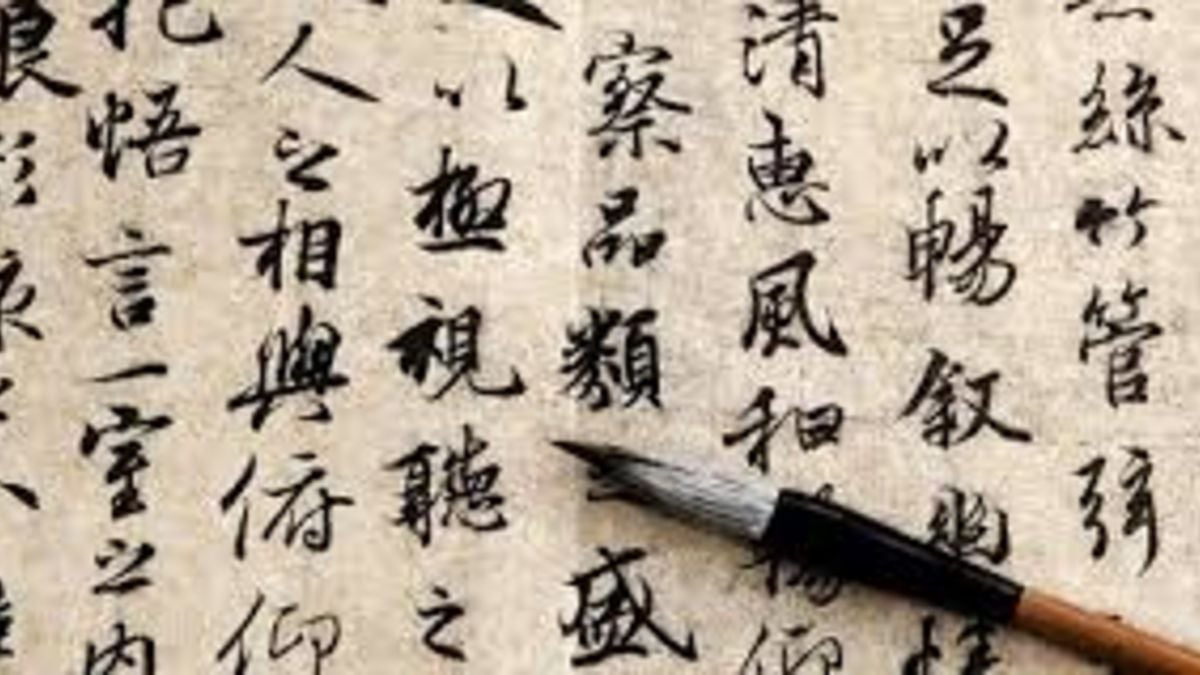 絲竹管弦
足以暢叙幽情
清惠風和暢仰
察品類之盛
以極視聽之
人之相與俯仰
抱悟言一室之內